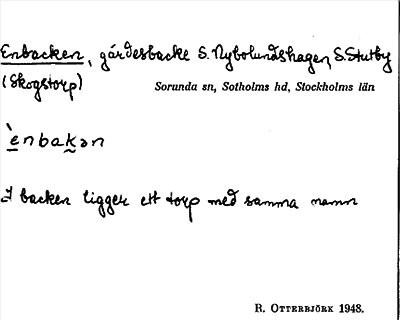 Enbacken, gärdesbacke S. Nybolundshagen, S. Stutby
(Skogstorp)
Sorunda sn, Sotholms hd, Stockholms län
`enbakən
I backen ligger ett torp med samma namn
R. OTTERBJÖRK 1948.